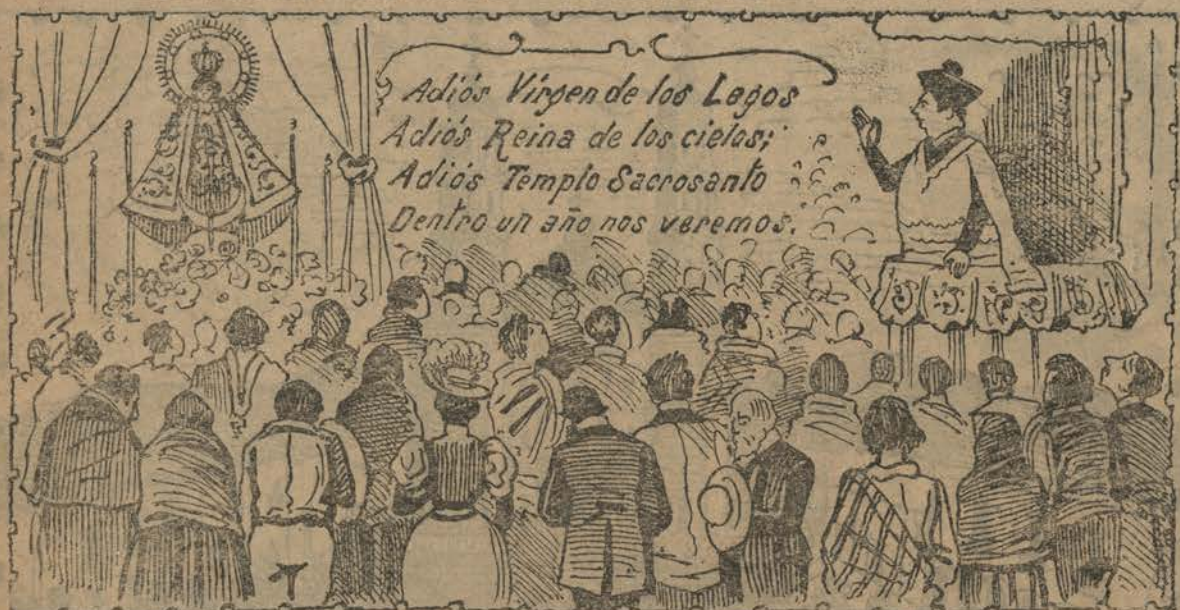 Adiós Virgen de los Lagos
Adiós Reina de los cielos;
Adiós Templo Sacrosanto
Dentro un año nos veremos.